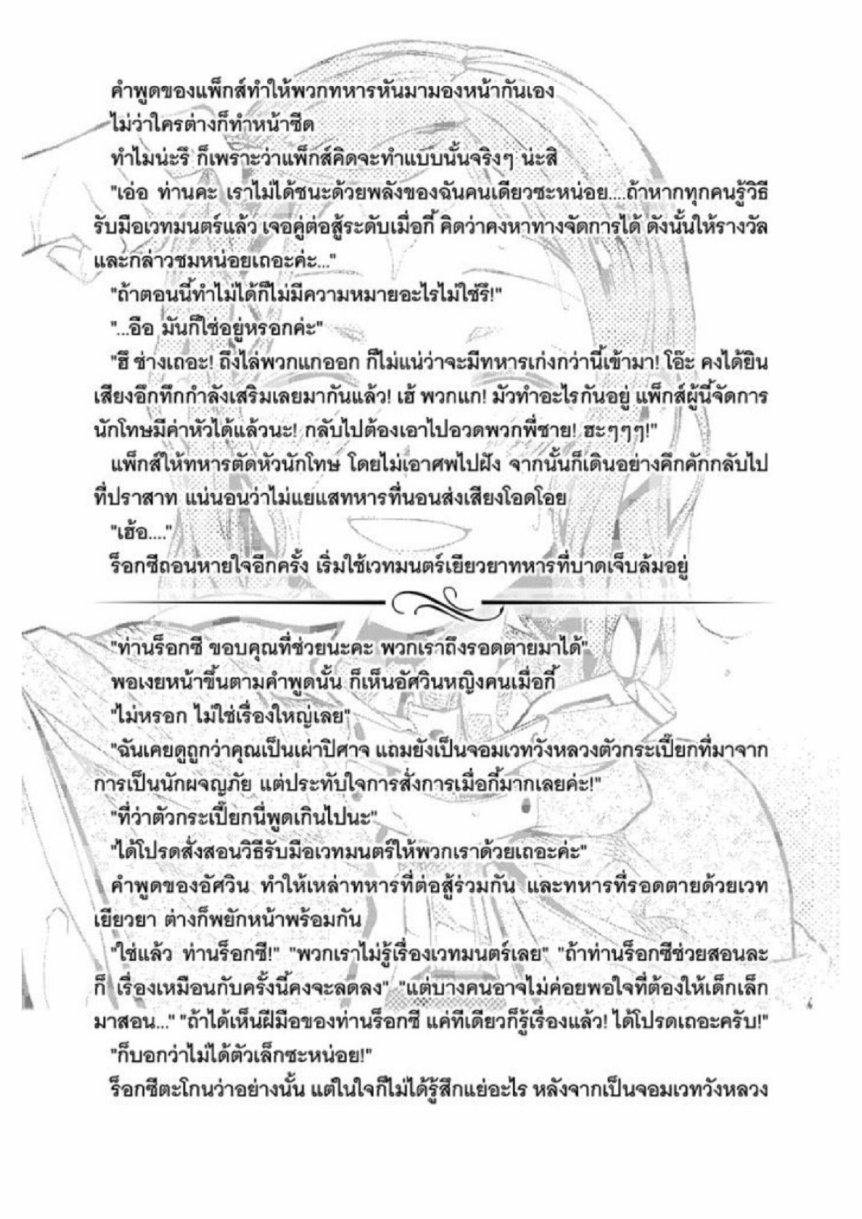 คำพูดของแพ็กส์ทำให้พวกทหารหันมามองหน้ากันเอง
ไม่ว่าใครต่างก็ทำหน้าซีด
ทำไมน่ะรึ ก็เพราะว่าแพ็กส์คิดจะทำแบบนั้นจริงๆ น่ะสิ
"เอ่อ ท่านคะ เราไม่ได้ชนะด้วยพลังของฉันคนเดียวซะหน่อย....ถ้าหากทุกคนรู้วิธี
รับมือเวทมนตร์แล้ว เจอคู่ต่อสู้ระดับเมื่อกี้ คิดว่าคงหาทางจัดการได้ ดังนั้นให้รางวัล
และกล่าวชมหน่อยเถอะค่ะ..."
"ถ้าตอนนี้ทำไม่ได้ก็ไม่มีความหมายอะไรไม่ใช่รึ!"
"...อือ มันก็ใช่อยู่หรอกค่ะ"
"ฮึ ช่างเถอะ! ถึงไล่พวกแกออก ก็ไม่แน่ว่าจะมีทหารเก่งกว่านี้เข้ามา! โอ๊ะ คงได้ยิน
เสียงอึกทึกกำลังเสริมเลยมากันแล้ว! เฮ้ พวกแก! มัวทำอะไรกันอยู่ แพ็กส์ผู้นี้จัดการ
นักโทษมีค่าหัวได้แล้วนะ! กลับไปต้องเอาไปอวดพวกพี่ชาย! ฮะๆๆๆ!"
แพ็กส์ให้ทหารตัดหัวนักโทษ โดยไม่เอาศพไปฝัง จากนั้นก็เดินอย่างคึกคักกลับไป
ที่ปราสาท แน่นอนว่าไม่แยแสทหารที่นอนส่งเสียงโอดโอย
"เฮ้อ...."
ร็อกซีถอนหายใจอีกครั้ง เริ่มใช้เวทมนตร์เยียวยาทหารที่บาดเจ็บล้มอยู่
"ท่านร็อกซี ขอบคุณที่ช่วยนะคะ พวกเราถึงรอดตายมาได้"
พอเงยหน้าขึ้นตามคำพูดนั้น ก็เห็นอัศวินหญิงคนเมื่อกี้
"ไม่หรอก ไม่ใช่เรื่องใหญ่เลย"
"ฉันเคยดูถูกว่าคุณเป็นเผ่าปิศาจ แถมยังเป็นจอมเวทวังหลวงตัวกระเปี๊ยกที่มาจาก
การเป็นนักผจญภัย แต่ประทับใจการสั่งการเมื่อกี้มากเลยค่ะ!"
"ที่ว่าตัวกระเปี๊ยกนี่พูดเกินไปนะ"
"ได้โปรดสั่งสอนวิธีรับมือเวทมนตร์ให้พวกเราด้วยเถอะค่ะ"
คำพูดของอัศวิน ทำให้เหล่าทหารที่ต่อสู้ร่วมกัน และทหารที่รอดตายด้วยเวท
เยียวยา ต่างก็พยักหน้าพร้อมกัน
"ใช่แล้ว ท่านร็อกซี!" "พวกเราไม่รู้เรื่องเวทมนตร์เลย" "ถ้าท่านร็อกซีช่วยสอนละ
ก็ เรื่องเหมือนกับครั้งนี้คงจะลดลง" "แต่บางคนอาจไม่ค่อยพอใจที่ต้องให้เด็กเล็ก
มาสอน..." "ถ้าได้เห็นฝีมือของท่านร็อกซี แค่ทีเดียวก็รู้เรื่องแล้ว! ได้โปรดเถอะครับ!"
"ก็บอกว่าไม่ได้ตัวเล็กซะหน่อย!"
ร็อกซีตะโกนว่าอย่างนั้น แต่ในใจก็ไม่ได้รู้สึกแย่อะไร หลังจากเป็นจอมเวทวังหลวง